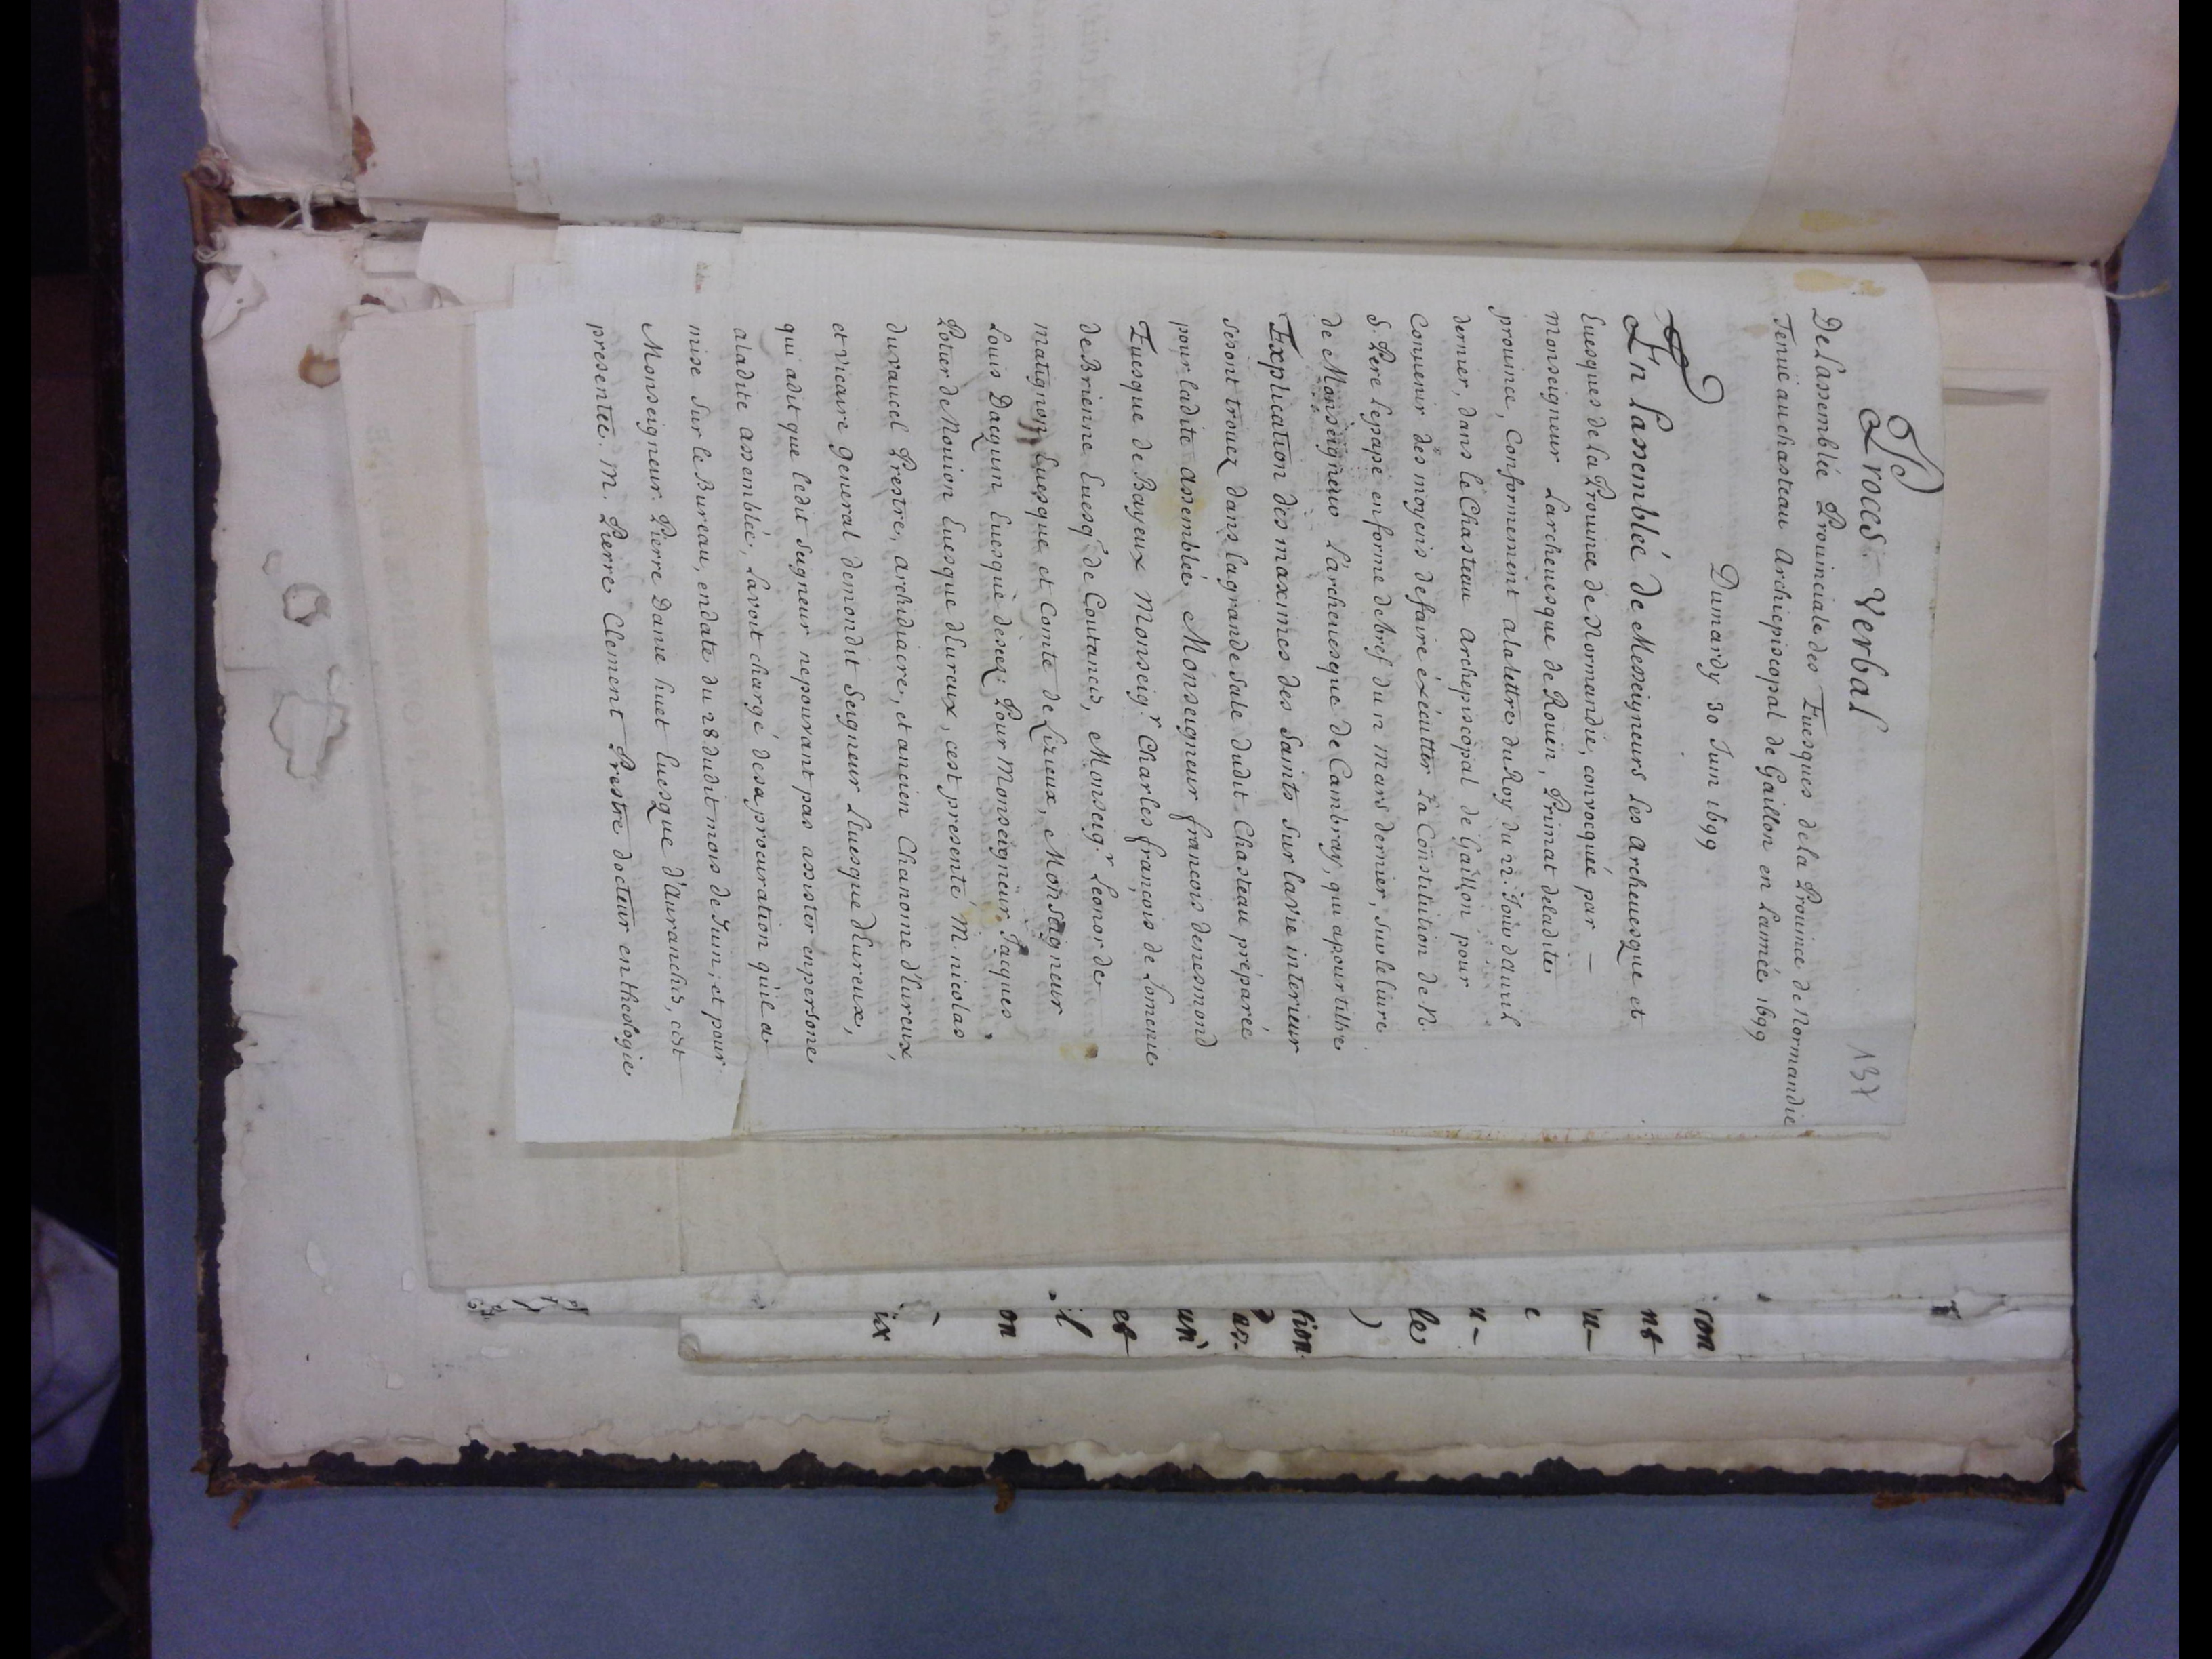 137
Procés Verbal
De Lassembleé Prouinciale des Euesques dela Prouince de Normandie
Tenuë au chasteau Archiepiscopal de Gaillon en Lanneé 1699
Dumardy 30 Juin 1699
En Lassembleé de Messeigneurs les Archeuesque et
Euesques de la Prouince de Normandie, convocqueé par —
Monseigneur Larcheuesque de Roüen, Primat deladite
prouince, Conformement alalettre du Roy du 22. Jour dauril
dernier, dans le Chasteau Archepiscopal de Gaillon pour
Conuenir des moyens defaire éxécutter La Constitution de N.
S. Pere Lepape enforme debref du 12 mars dernier, Surleliure
de Monseigneur Larcheuesque de Cambray, qui apourtiltre
Explication des maximes des Saints Sur lavie interieur
Seront trouez dans lagrande Sale dudit Chasteau préparée
pour ladite assembleé Monseigneur francois denesmond
Euesque de Bayeux Monseigr. Charles françois de Lomenie
de Brienne Euesqe. de Coutances, Monseigr. Leonor de
matignon Euesque et Comte de Lizieux, Monseigneur
Louis Daquin Euesque deseez: Pour Monseigneur Jacques
Potier de Nouion Euesque dEureux, cest presenté M. nicolas
duvaucel Prestre, archidiacre, et ancien Chanoine d'Eureux,
et vicaire General demondit Seigneur Lluesque dEureux,
qui adit que ledit Seigneur nepouvant pas assister enpersone
aladite assembleé, Lavoit chargé desaprocuration quil a
mise Sur le Bureau, endate du 28 dudit mois de Juin; et pour
Monseigneur Pierre Daniel huet Euesque d'Auranches, cest
presenteé. M. Pierre Clement Prestre docteur en theologie
ion
nt
u-
c
u-
le
)
tion
as-
un
et
il
on
ux